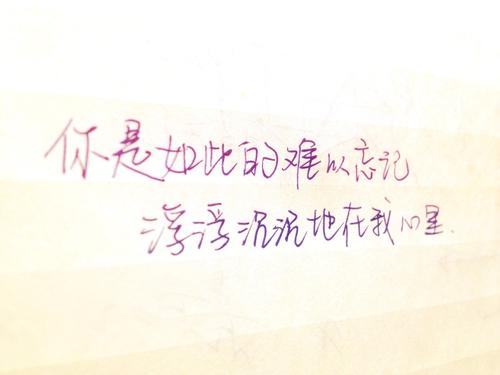 你是如此的难以忘记
浮浮沉沉地在我心里.